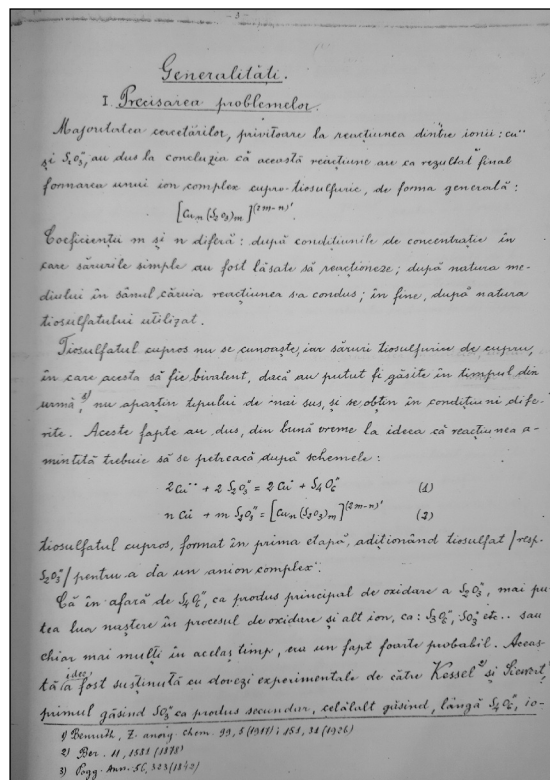 - 3 -
Generalități.
I. Precisarea problemelor.
Majoritatea cercetărilor, privitoare la reacțiunea dintre ionii: cu¨
și S₂O₃", au dus la concluzia că această reacțiune are ca rezultat final
formarea unui ion complex cupro-tiosulfuric, de forma generală:
[Cuₙ(S₂O₃)ₘ]⁽²ᵐ⁻ⁿ⁾'.
Coeficienții m și n diferă: după condițiunile de concentrație în
care sărurile simple au fost lăsate să reacționeze; după natura me-
diului în sânul căruia reacțiunea s-a condus; în fine, după natura
tiosulfatului utilizat.
Tiosulfatul cupros nu se cunoaște, iar săruri tiosulfurice de cupru,
în care acesta să fie bivalent, dacă au putut fi găsite în timpul din
urmă,¹⁾ nu aparțin tipului de mai sus, și se obțin în condițiuni dife-
rite. Aceste fapte au dus, din bună vreme la ideea că reacțiunea a-
mintită trebuie să se petreacă după schemele:
2Cu¨ + 2 S₂O₃" = 2 Cu˙ + S₄O₆" (1)
n Cu˙ + m S₂O₃" = [Cuₙ(S₂O₃)ₘ]⁽²ᵐ⁻ⁿ⁾' (2)
tiosulfatul cupros, format în prima etapă, adiționând tiosulfat /resp.
S₂O₃"/ pentru a da un anion complex.
Că în afară de S₄O₆", ca produs principal de oxidare a S₂O₃", mai pu-
tea lua naștere în procesul de oxidare și alt ion, ca: S₃O₆", SO₄" etc.. sau
chiar mai mulți în acelaș timp, era un fapt foarte probabil. Aceas-
tă idee a fost susținută cu dovezi experimentale de către Kessel²⁾ și Sievert,³⁾
primul găsind SO₃" ca produs secundar, celălalt găsind, lângă S₄O₆", io-
1) Benrath, Z. anorg. chem. 99, 5 (1917); 151, 31 (1926)
2) Ber. 11, 1581 (1878)
3) Pogg. Ann. 56, 323 (1842)